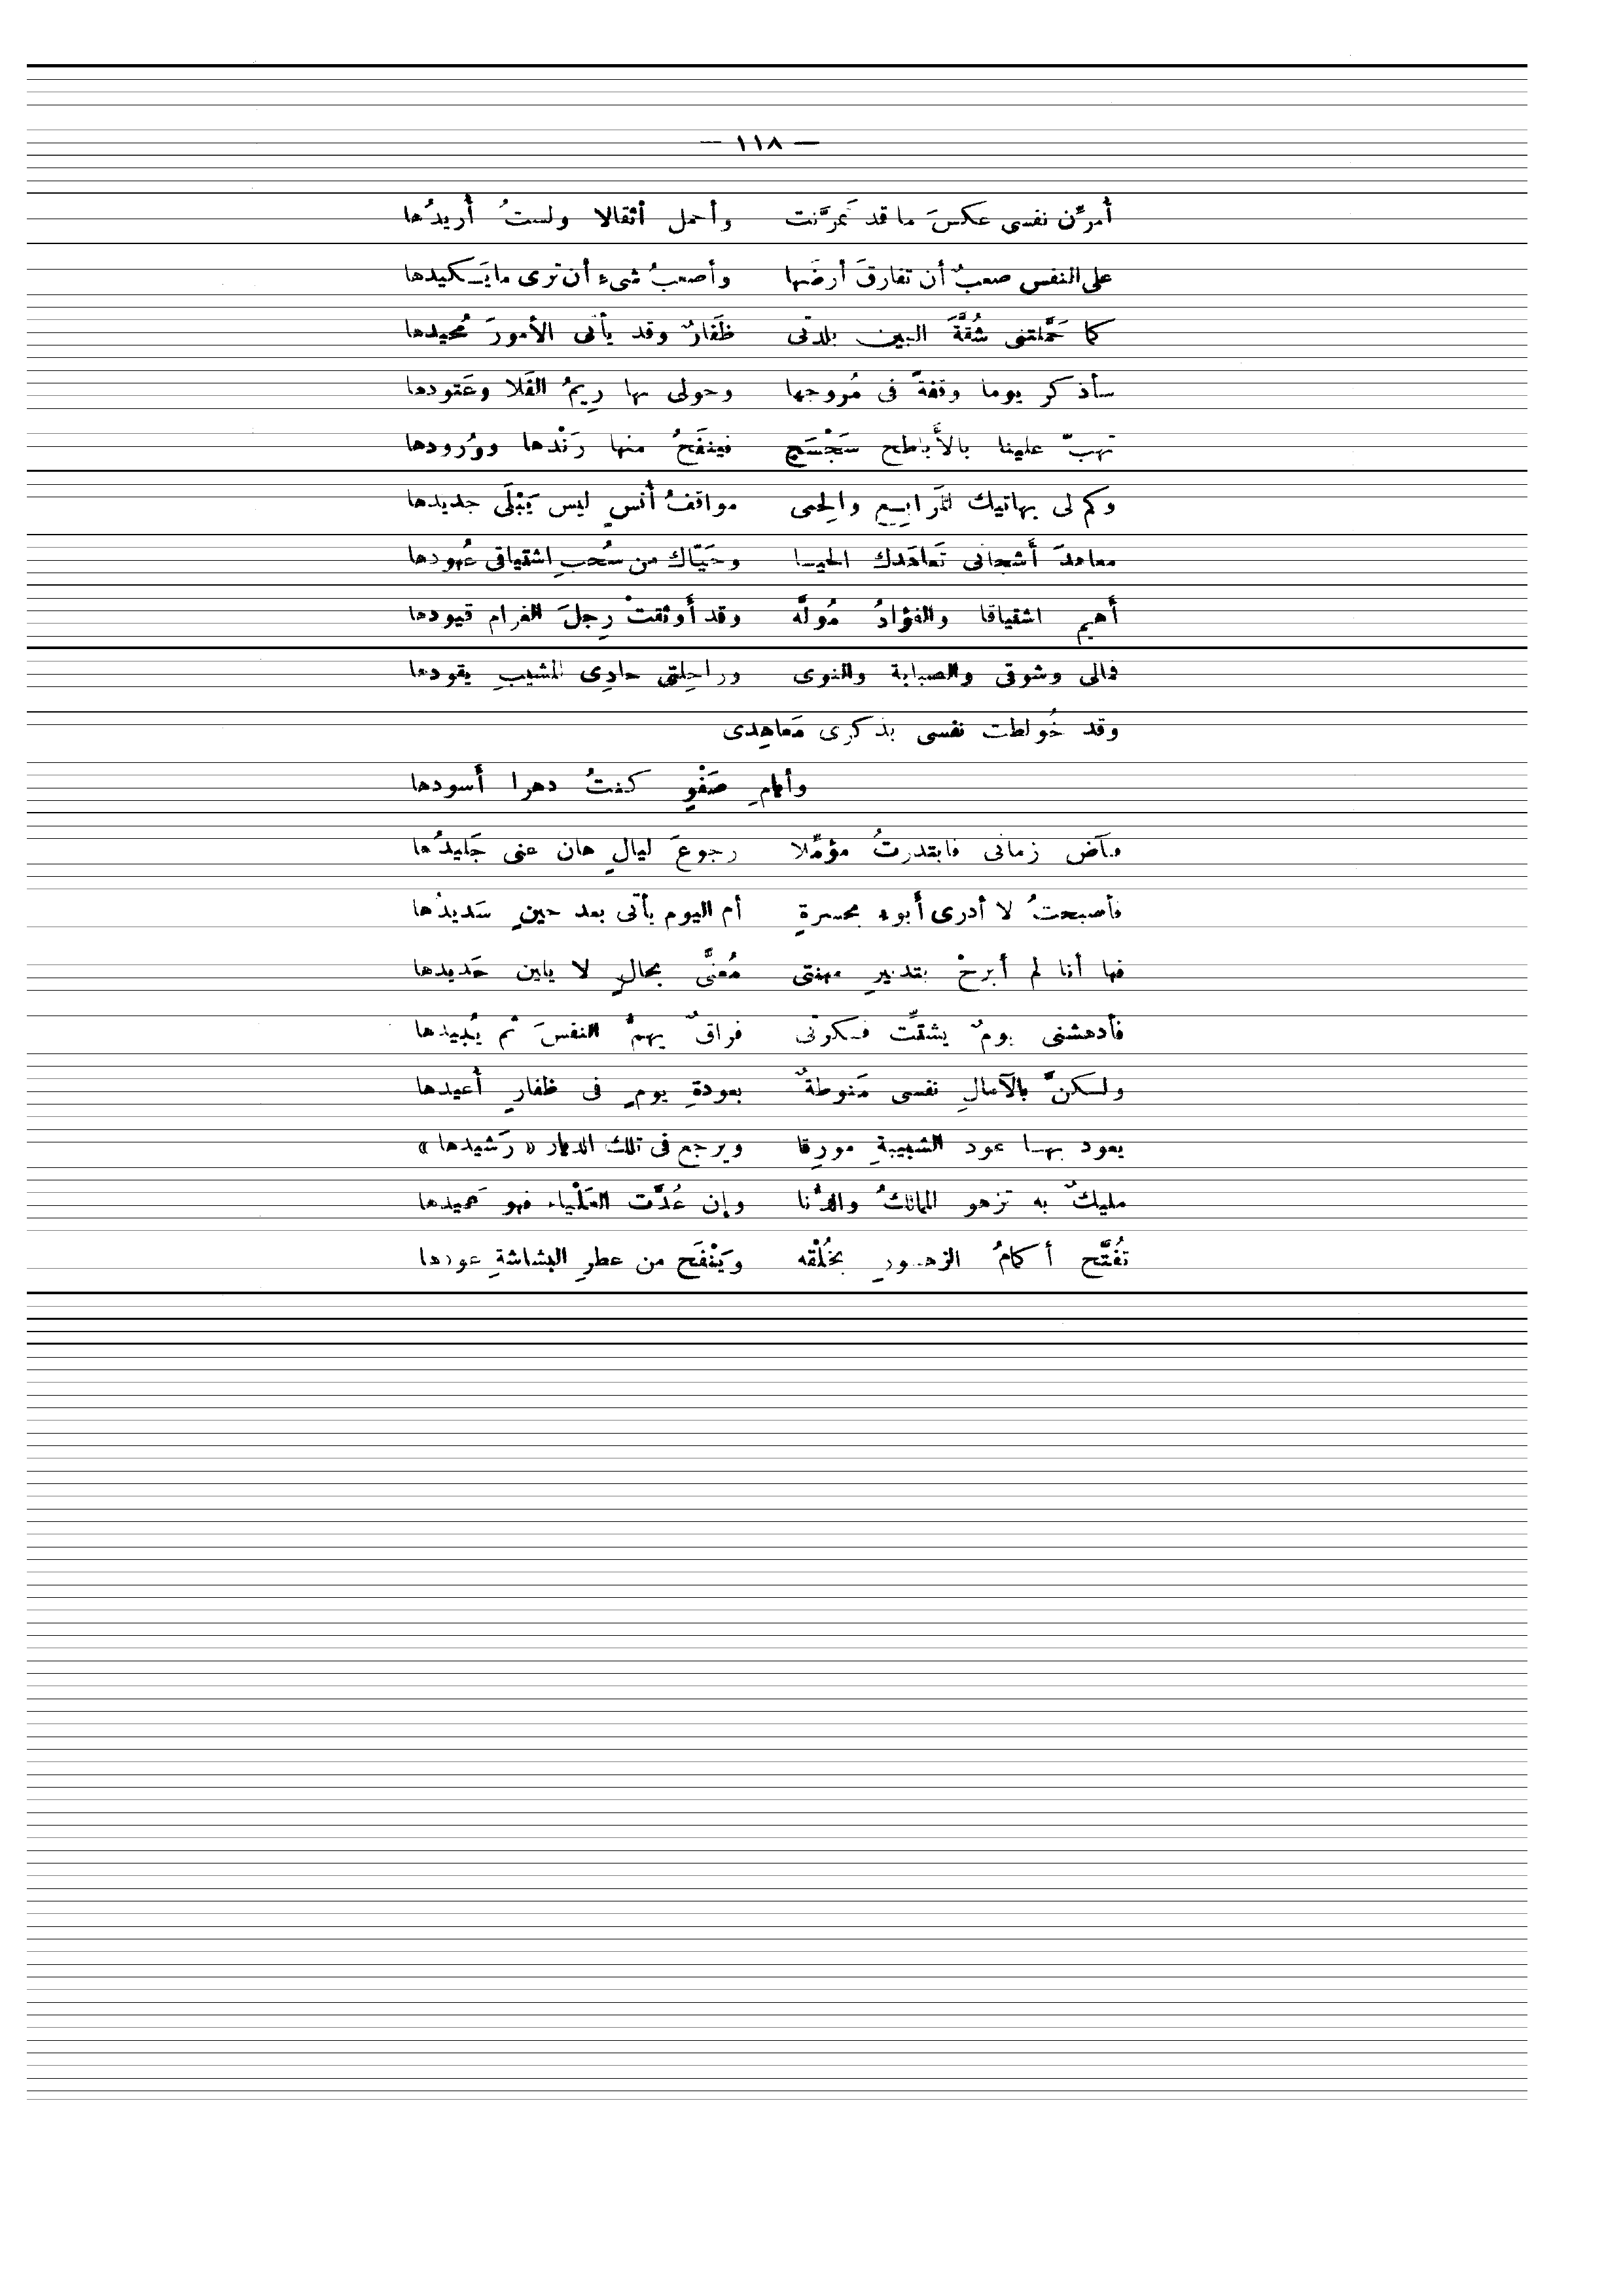 — ١١٨ —
أمرِّن نفسى عكسَ ما قد تمرَّنت وأحمل أثقالا ولستُ أريدُها
على النفس صعبٌ أن تفارقَ أرضَها وأصعبُ شىء أن ترى ما يَكيدها
كما حَمَّلتنى شُقَّةَ البين بلدتى ظَفَارٌ وقد يأتى الأمورَ مُحيدها
سأذكر يوما وقفةً فى مُروجها وحولى بها رِيمُ الفَلا وعَتودها
تهبّ علينا بالأَباطح سَجْسَج فينفَحُ منها رَنْدها ووُرودها
وكم لى بهاتيك المَرابِع والِحمى مواقفُ أُنسٍ ليس يَبْلَى جديدها
معاهدَ أَشجانى تَعاهَدك الحيا وحَيّاك من سُحبِ اشتياقى عُهودها
أَهيم اشتياقا والفؤادُ مُولَّه وقد أَوثقتْ رِجلَ الغرام قيودها
فمالى وشوقى والصبابة والنوى وراحِلتى حادِى المشيبِ يقودها
وقد خُولطت نفسى بذكرى مَعاهِدى
وأيامِ صَفْوٍ كنتُ دهرا أسودها
وآض زمانى فابتدرتُ مؤمِّلا رجوعَ ليالٍ هان عنى جَليدُها
فأصبحتُ لا أدرى أبوء بحسرةٍ أم اليوم يأتى بعد حينٍ سَديدُها
فها أنا لم أبرحْ بتدبيرِ مهنتى مُعنًّى بحالٍ لا يلين حَديدها
فأدهشنى يومٌ يشتِّت فكرتى فراقٌ يهمُّ النفسَ ثم يُبيدها
ولكنَّ بالآمالِ نفسى مَنوطةٌ بعودةِ يومٍ فى ظفارٍ أعيدها
يعود بها عود الشبيبةِ مورِقا ويرجع فى تلك الديار «رَشيدها»
مليكٌ به تزهو الممالكُ والدُّنا وإن عُدَّت العَلْياء فهو عَميدها
تُفتَّح أكمامُ الزهورِ بخُلْقه ويَنْفَح من عطرِ البشاشةِ عودها